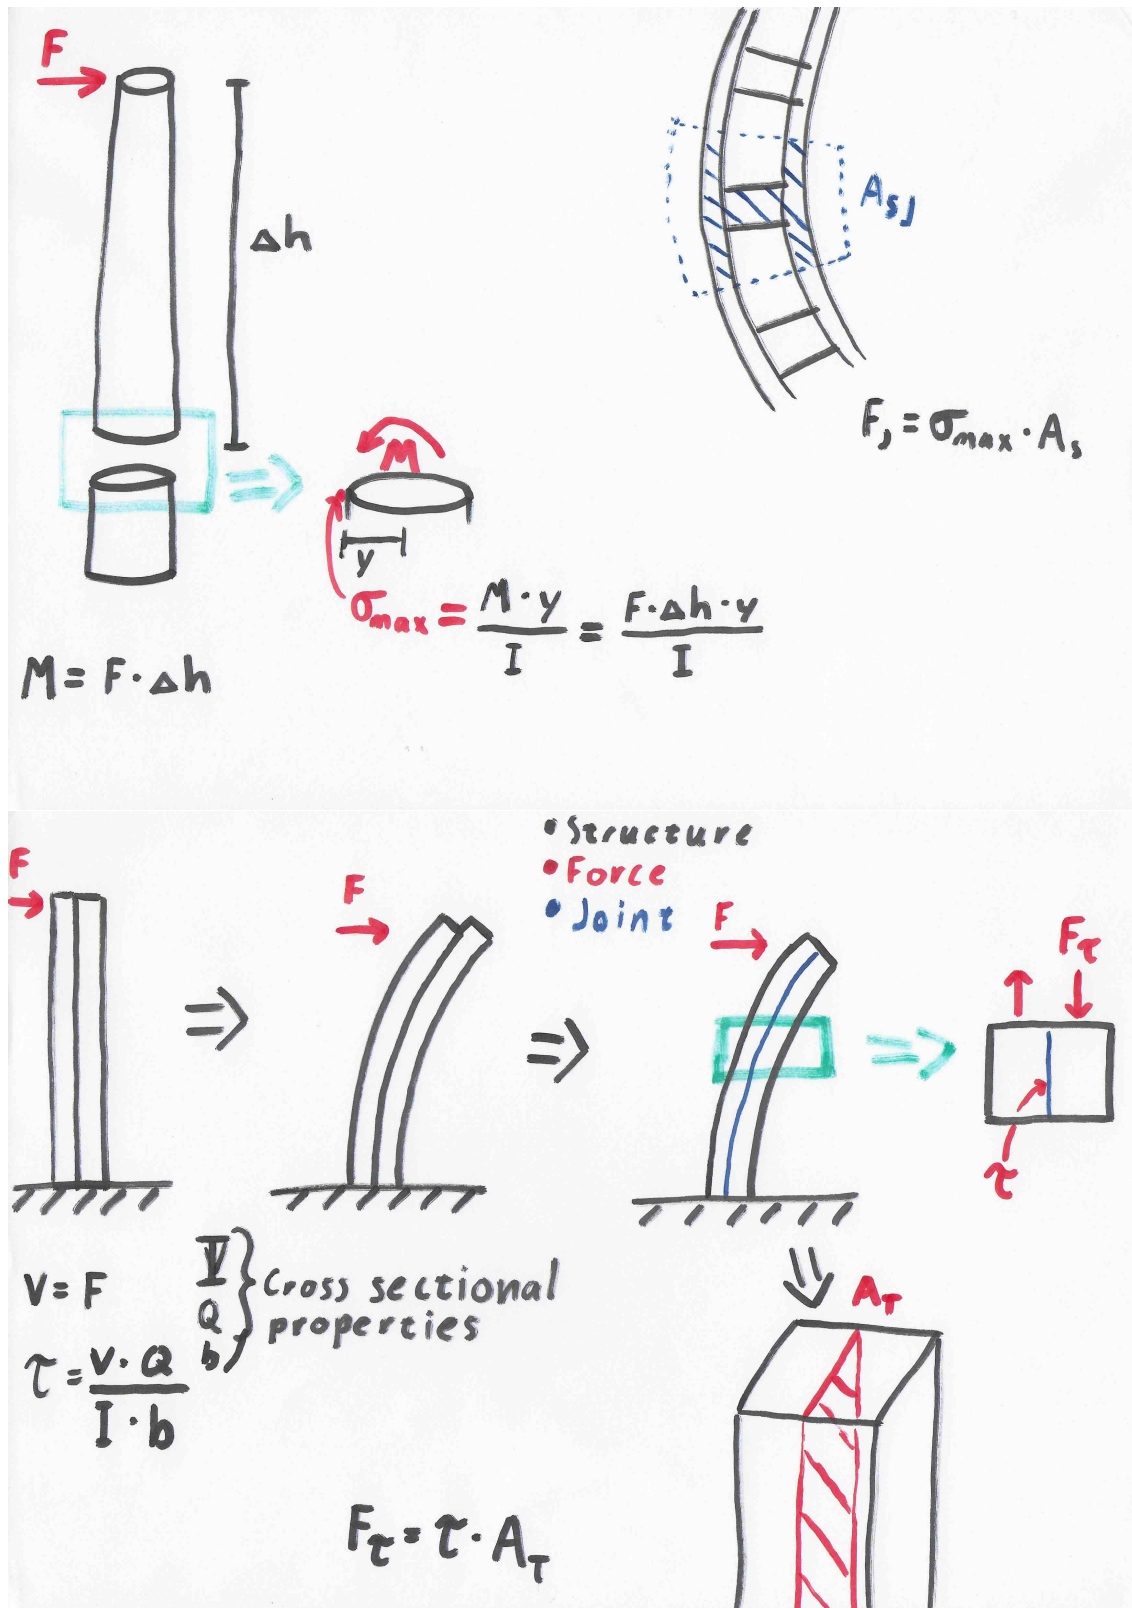 F
Δh
A_SJ
F_J = σ_max · A_s
M
y
σ_max = M · y / I = F · Δh · y / I
M = F · Δh
• Structure
• Force
• Joint
F
F
F
F_τ
τ
V = F
I
Q
b
} Cross sectional
properties
τ = V · Q / I · b
A_T
F_τ = τ · A_T